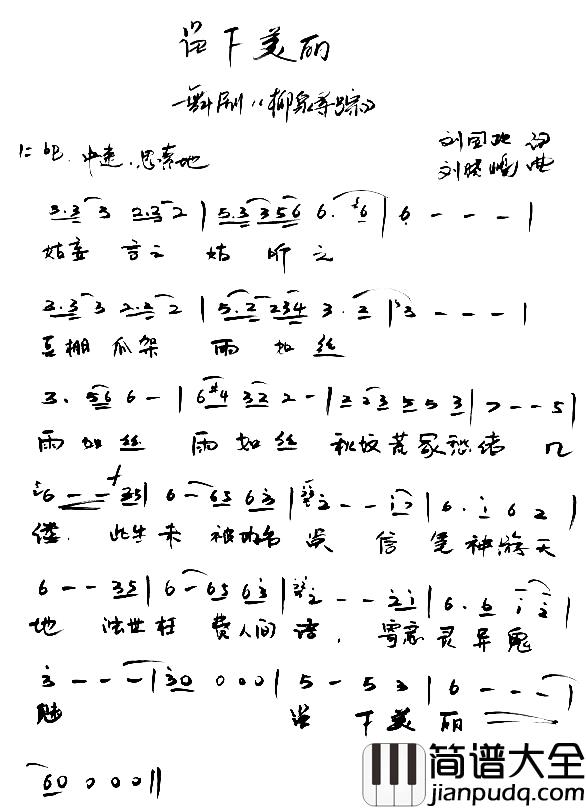 留下美丽
舞剧《柳泉寻踪》
1=bE 中速、思索地
刘国
刘晓 曲
3.3 3 2.3 2 | 5.3 3 5 6 6. #6 | 6 - - - |
姑妄言之 姑听之
3.3 3 2.2 2 | 5.2 2 3 4 3. 2 | 3 - - - |
豆棚瓜架 雨如丝
3. 5 6 6 - | 6 #4 3 2 2 - | 2 2 3 5 5 5 3 | 7 - - 5 |
雨如丝 雨如丝 秋坟荒冢愁绪 几
6 - - 3 5 | 6 - 6 5 6 3 | 2 - - 1 | 6. 1 6 2 |
缕. 此生未被功名误 信笔神游天
6 - - 3 5 | 6 - 6 5 6 3 | 2 - - 2 1 | 6. 6 1 2 |
地 浊世枉费人间语, 寄意灵异鬼
3 - - - | 3 0 0 0 0 | 5 - 5 3 | 6 - - - |
魅 留下美丽
6 0 0 0 0 ||
简谱大全
www.jianpudq.com